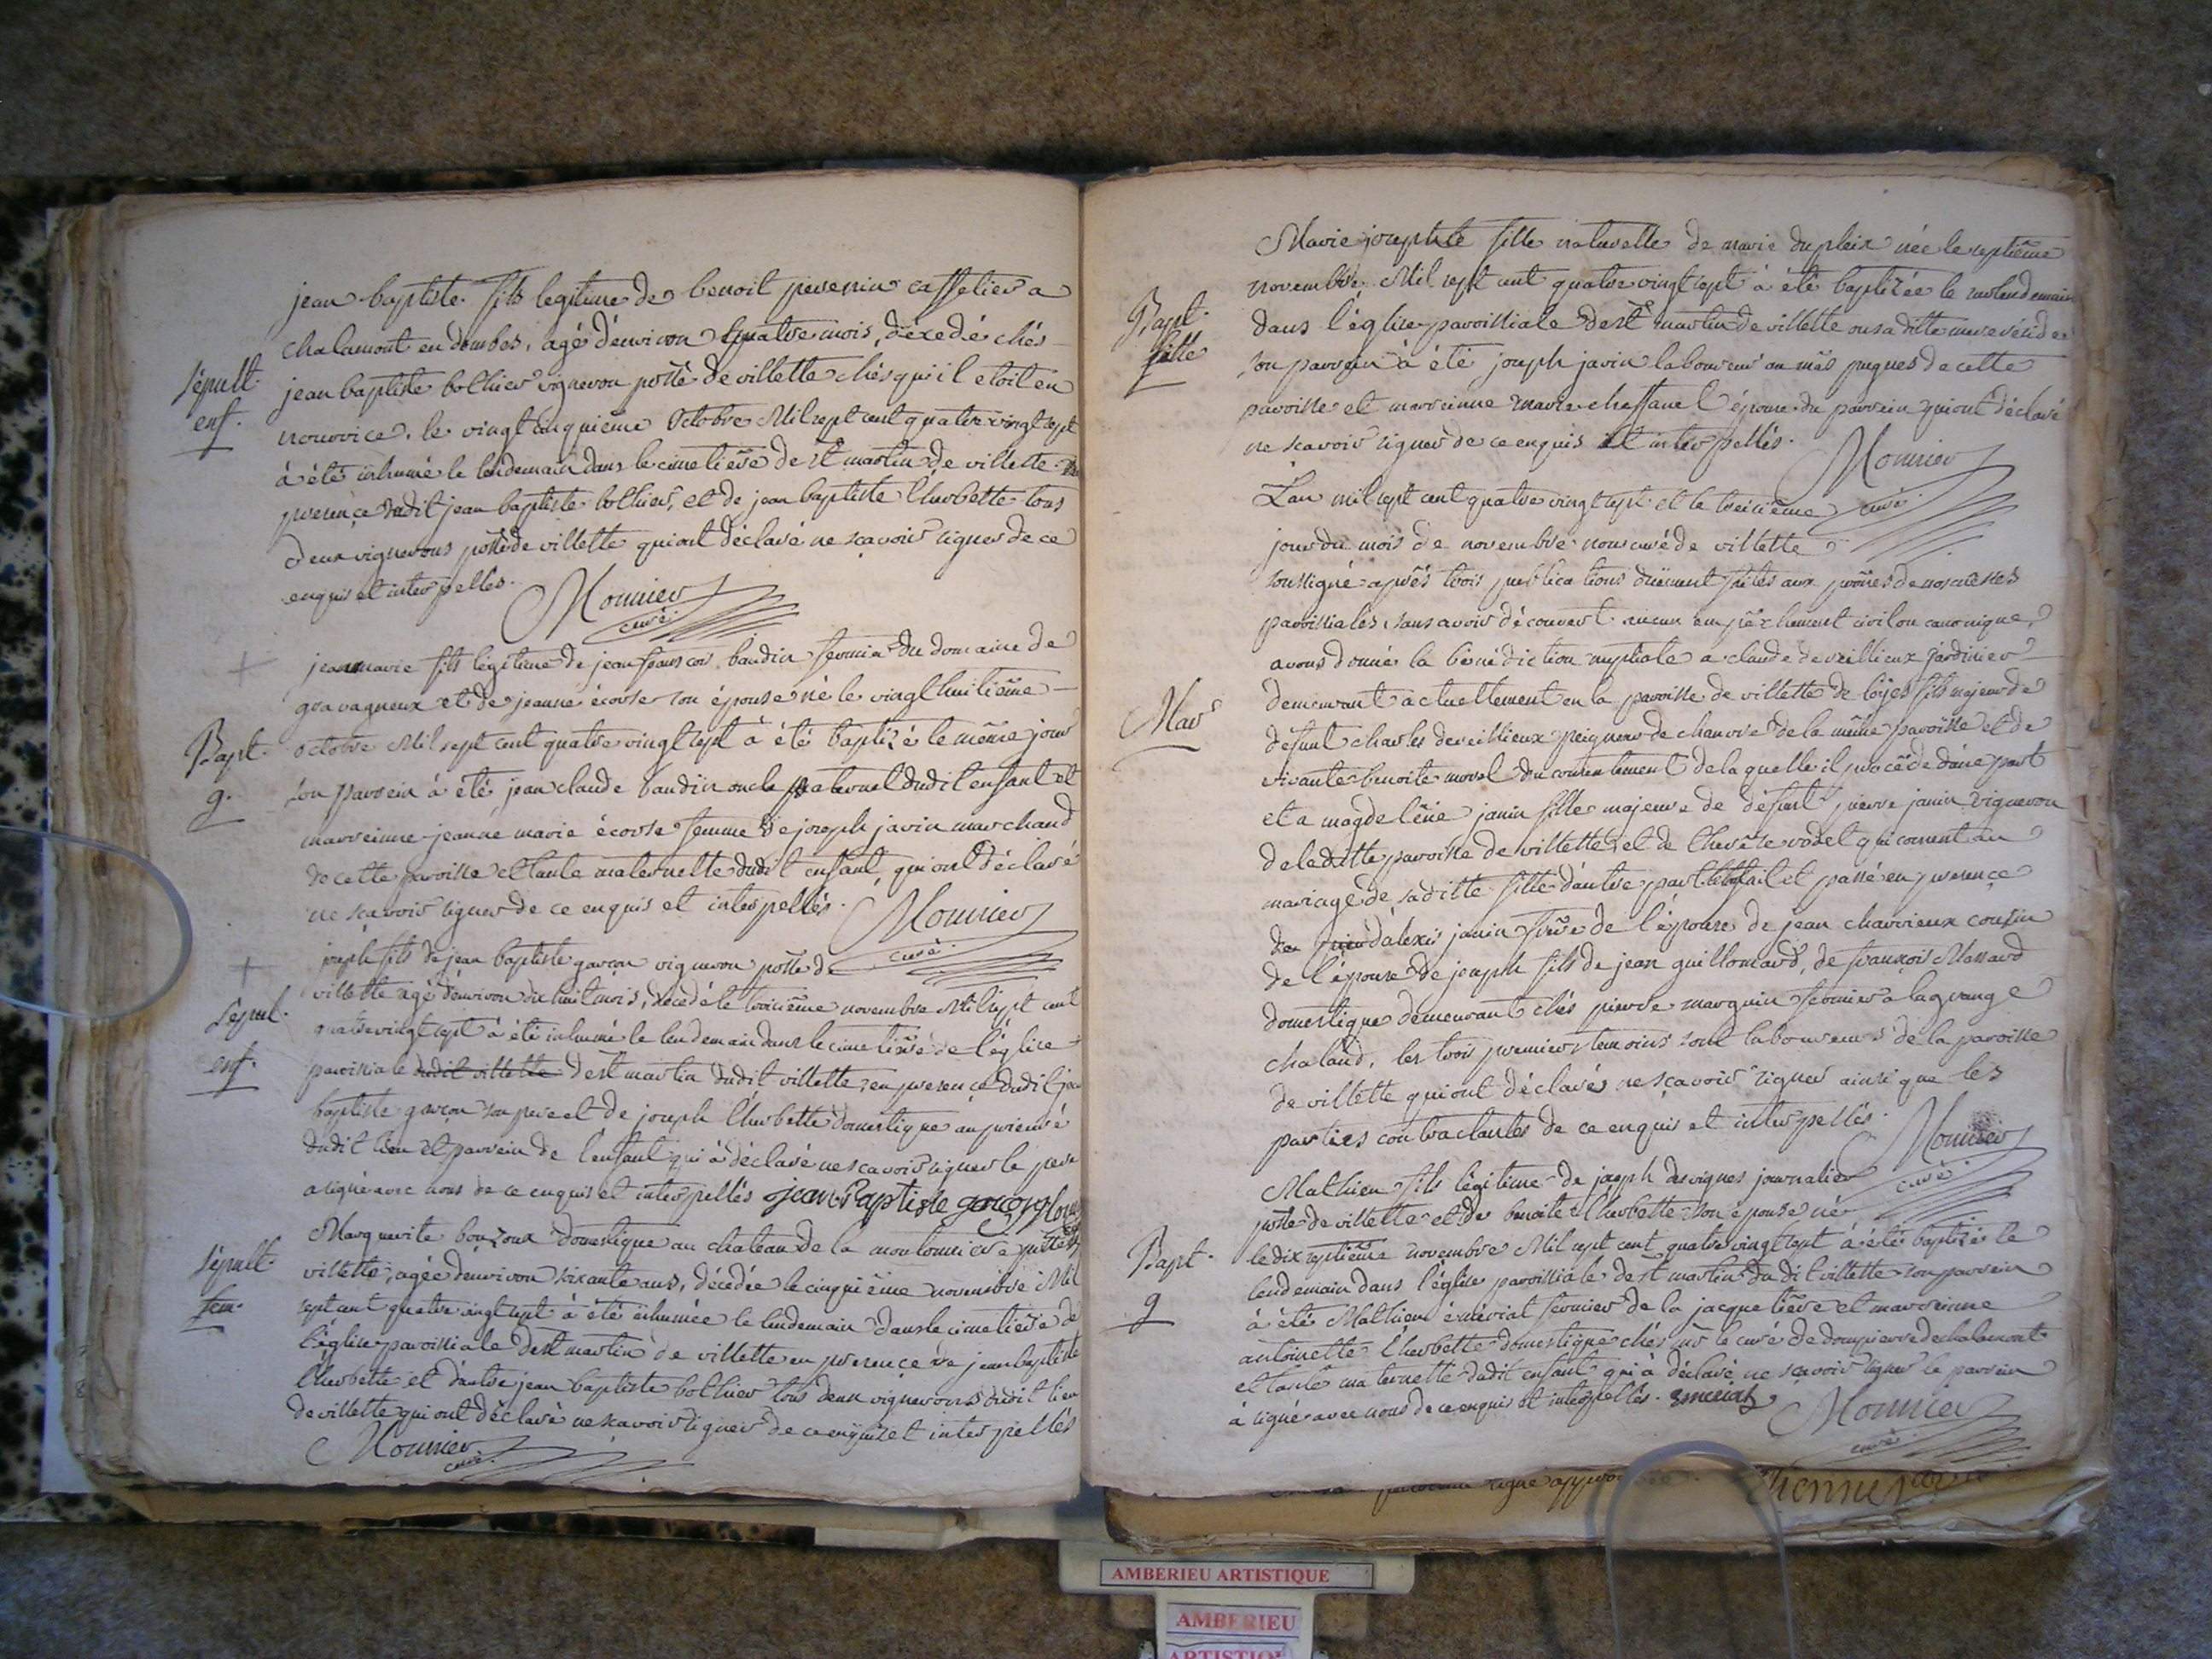 jean baptiste fils legitime de benoit perenin caffetier a
chalamont en dombes, agé d'environ quatre mois, décédé chés
Sépult.
enf.
jean baptiste bothier vigneron psse de villette chés qui il etoit en
nourrice, le vingt cinquieme octobre Mil sept cent quatre vingt sept
à été inhumé le lendemain dans le cimetière de st martin de villette en
presence dudit jean baptiste bothier, et de jean baptiste l'herbette tous
deux vignerons psse de villette qui ont déclaré ne sçavoir signer de ce
enquis et interpellés.
Monnier
curé
jean marie fils légitime de jean francois baudin fermier du domaine de
gravagneux et de jeanne écorse son épouse né le vingt huitième
Bapt.
g.
octobre Mil sept cent quatre vingt sept à été baptizé le même jour
son parrein à été jean claude baudin oncle paternel dudit enfant et
marreinne jeanne marie écorse femme de joseph javin marchand
de cette paroisse et tante maternelle dudit enfant, qui ont déclaré
ne scavoir signer de ce enquis et interpellés.
Monnier
curé
joseph fils de jean baptiste garçon vigneron psse de
villette agé d'environ dix huit mois, décédé le troisième novembre Mil sept cent
Sépul.
enf.
quatre vingt sept à été inhumé le lendemain dans le cimetière de l'église
paroissiale dudit villette de st martin dudit villette, en presence dudit jean
baptiste garçon son pere et de joseph l'herbette domestique au prieuré
dudit lieu et parrein de l'enfant qui à déclaré ne scavoir signer le pere
a signé avec nous de ce enquis et interpellés jean Baptiste garçon
Marguerite bouzoux domestique au chateau de la moutonniere psse de
Sépult.
fem.
villette, agée d'environ soixante ans, décédée le cinquième novembre Mil
sept cent quatre vingt sept à été inhumée le lendemain dans le cimetiere de
l'église paroissiale de st martin de villette en presence de jean baptiste
l'herbette et d'autre jean baptiste bothier tous deux vignerons dudit lieu
de villette qui ont déclaré ne scavoir signer de ce enquis et interpellés
Monnier
curé
Marie josephte fille naturelle de marie dupleix née le septième
novembre Mil sept cent quatre vingt sept à été baptizée le surlendemain
Bapt.
fille
dans l'église paroissiale de st martin de villette ou sa ditte mere réside
son parrein à été joseph javin laboureur au mas pugues de cette
paroisse et marreinne marie chaffanel épouse du parrein qui ont déclaré
ne scavoir signer de ce enquis et interpellés.
Monnier
curé
L'an mil sept cent quatre vingt sept et le treizième
jour du mois de novembre nous curé de villette
soussigné après trois publications duement faites aux prônes de nos messes
paroissiales, sans avoir découvert aucun empêchement civil ou canonique,
avons donné la bénédiction nuptiale a claude deveillieux jardinier
Mar.
demeurant actuellement en la paroisse de villette de loyes fils majeur de
défunt charles deveillieux peigneur de chanvre de la même paroisse et de
vivante benoite morel du consentement de laquelle il procéde d'une part
et a magdeleine janin fille majeure de défunt pierre janin vigneron
de la ditte paroisse de villette et de therése rodet qui consent au
mariage de sa ditte fille d'autre part le tout fait et passé en presence
d'alexis janin frère de l'épouse de jean charrieux cousin
de l'épouse de joseph fils de jean guillomard, de francois Massard
domestique demeurant chés pierre marguin fermier a la grange
chaland, les trois premiers temoins sont laboureurs de la paroisse
de villette qui ont déclarés ne sçavoir signer ainsi que les
parties contractantes de ce enquis et interpellés.
Monnier
curé
Mathieu fils légitime de joseph desvignes journalier
psse de villette et de benoite l'herbette son épouse né
Bapt.
g
le dix septième novembre Mil sept cent quatre vingt sept à été baptizé le
lendemain dans l'église paroissiale de st martin du dit villette son parrein
à été Mathieu émériat fermier de la jacquetière et marreinne
antoinette l'herbette domestique chés mr le curé de dompierre de chalamont
et tante maternelle dudit enfant qui à déclaré ne scavoir signer le parrein
à signé avec nous de ce enquis et interpellés. Emeriat
Monnier
curé
signé
AMBERIEU ARTISTIQUE
AMBERIEU
ARTISTIQUE